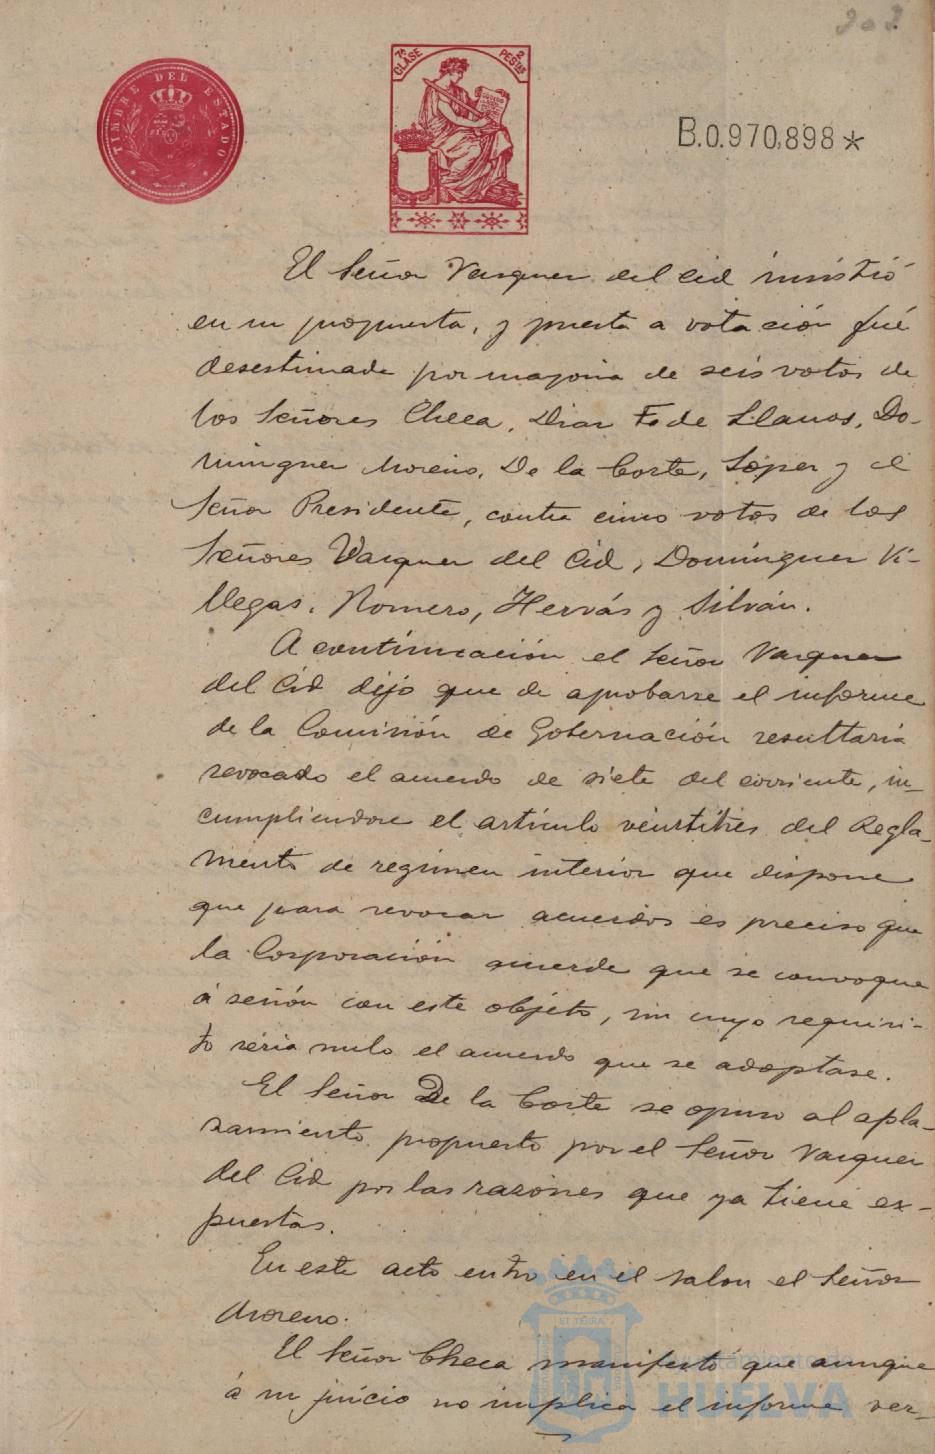 202
TIMBRE DEL ESTADO
7ª CLASE
2 PESTAS
B.0.970,898*
El Señor Vazquez del Cid insistió
en su propuesta, y puesta a votación fué
desestimada por mayoria de seis votos de
los Señores Checa, Diaz F. de Llanos, Do-
minguez Moreno, De la Corte, López y el
Señor Presidente, contra cinco votos de los
Señores Vazquez del Cid, Domínguez Vi-
llegas, Romero, Hervás y Silván.
A continuación el Señor Vazquez
del Cid dijo que de aprobarse el informe
de la Comisión de Gobernación resultaria
revocado el acuerdo de siete del corriente, in-
cumpliendose el artículo veintitres del Regla-
mento de regimen interior que dispone
que para revocar acuerdos es preciso que
la Corporación acuerde que se convoque
á sesión con este objeto, sin cuyo requisi-
to seria nulo el acuerdo que se adoptase.
El Señor De la Corte se opuso al apla-
zamiento propuesto por el Señor Vazquez
del Cid por las razones que ya tiene ex-
puestas.
En este acto entro en el salon el Señor
Moreno.
El Señor Checa manifestó que aunque
á su juicio no implica el informe ver-
Ayuntamiento de
HUELVA